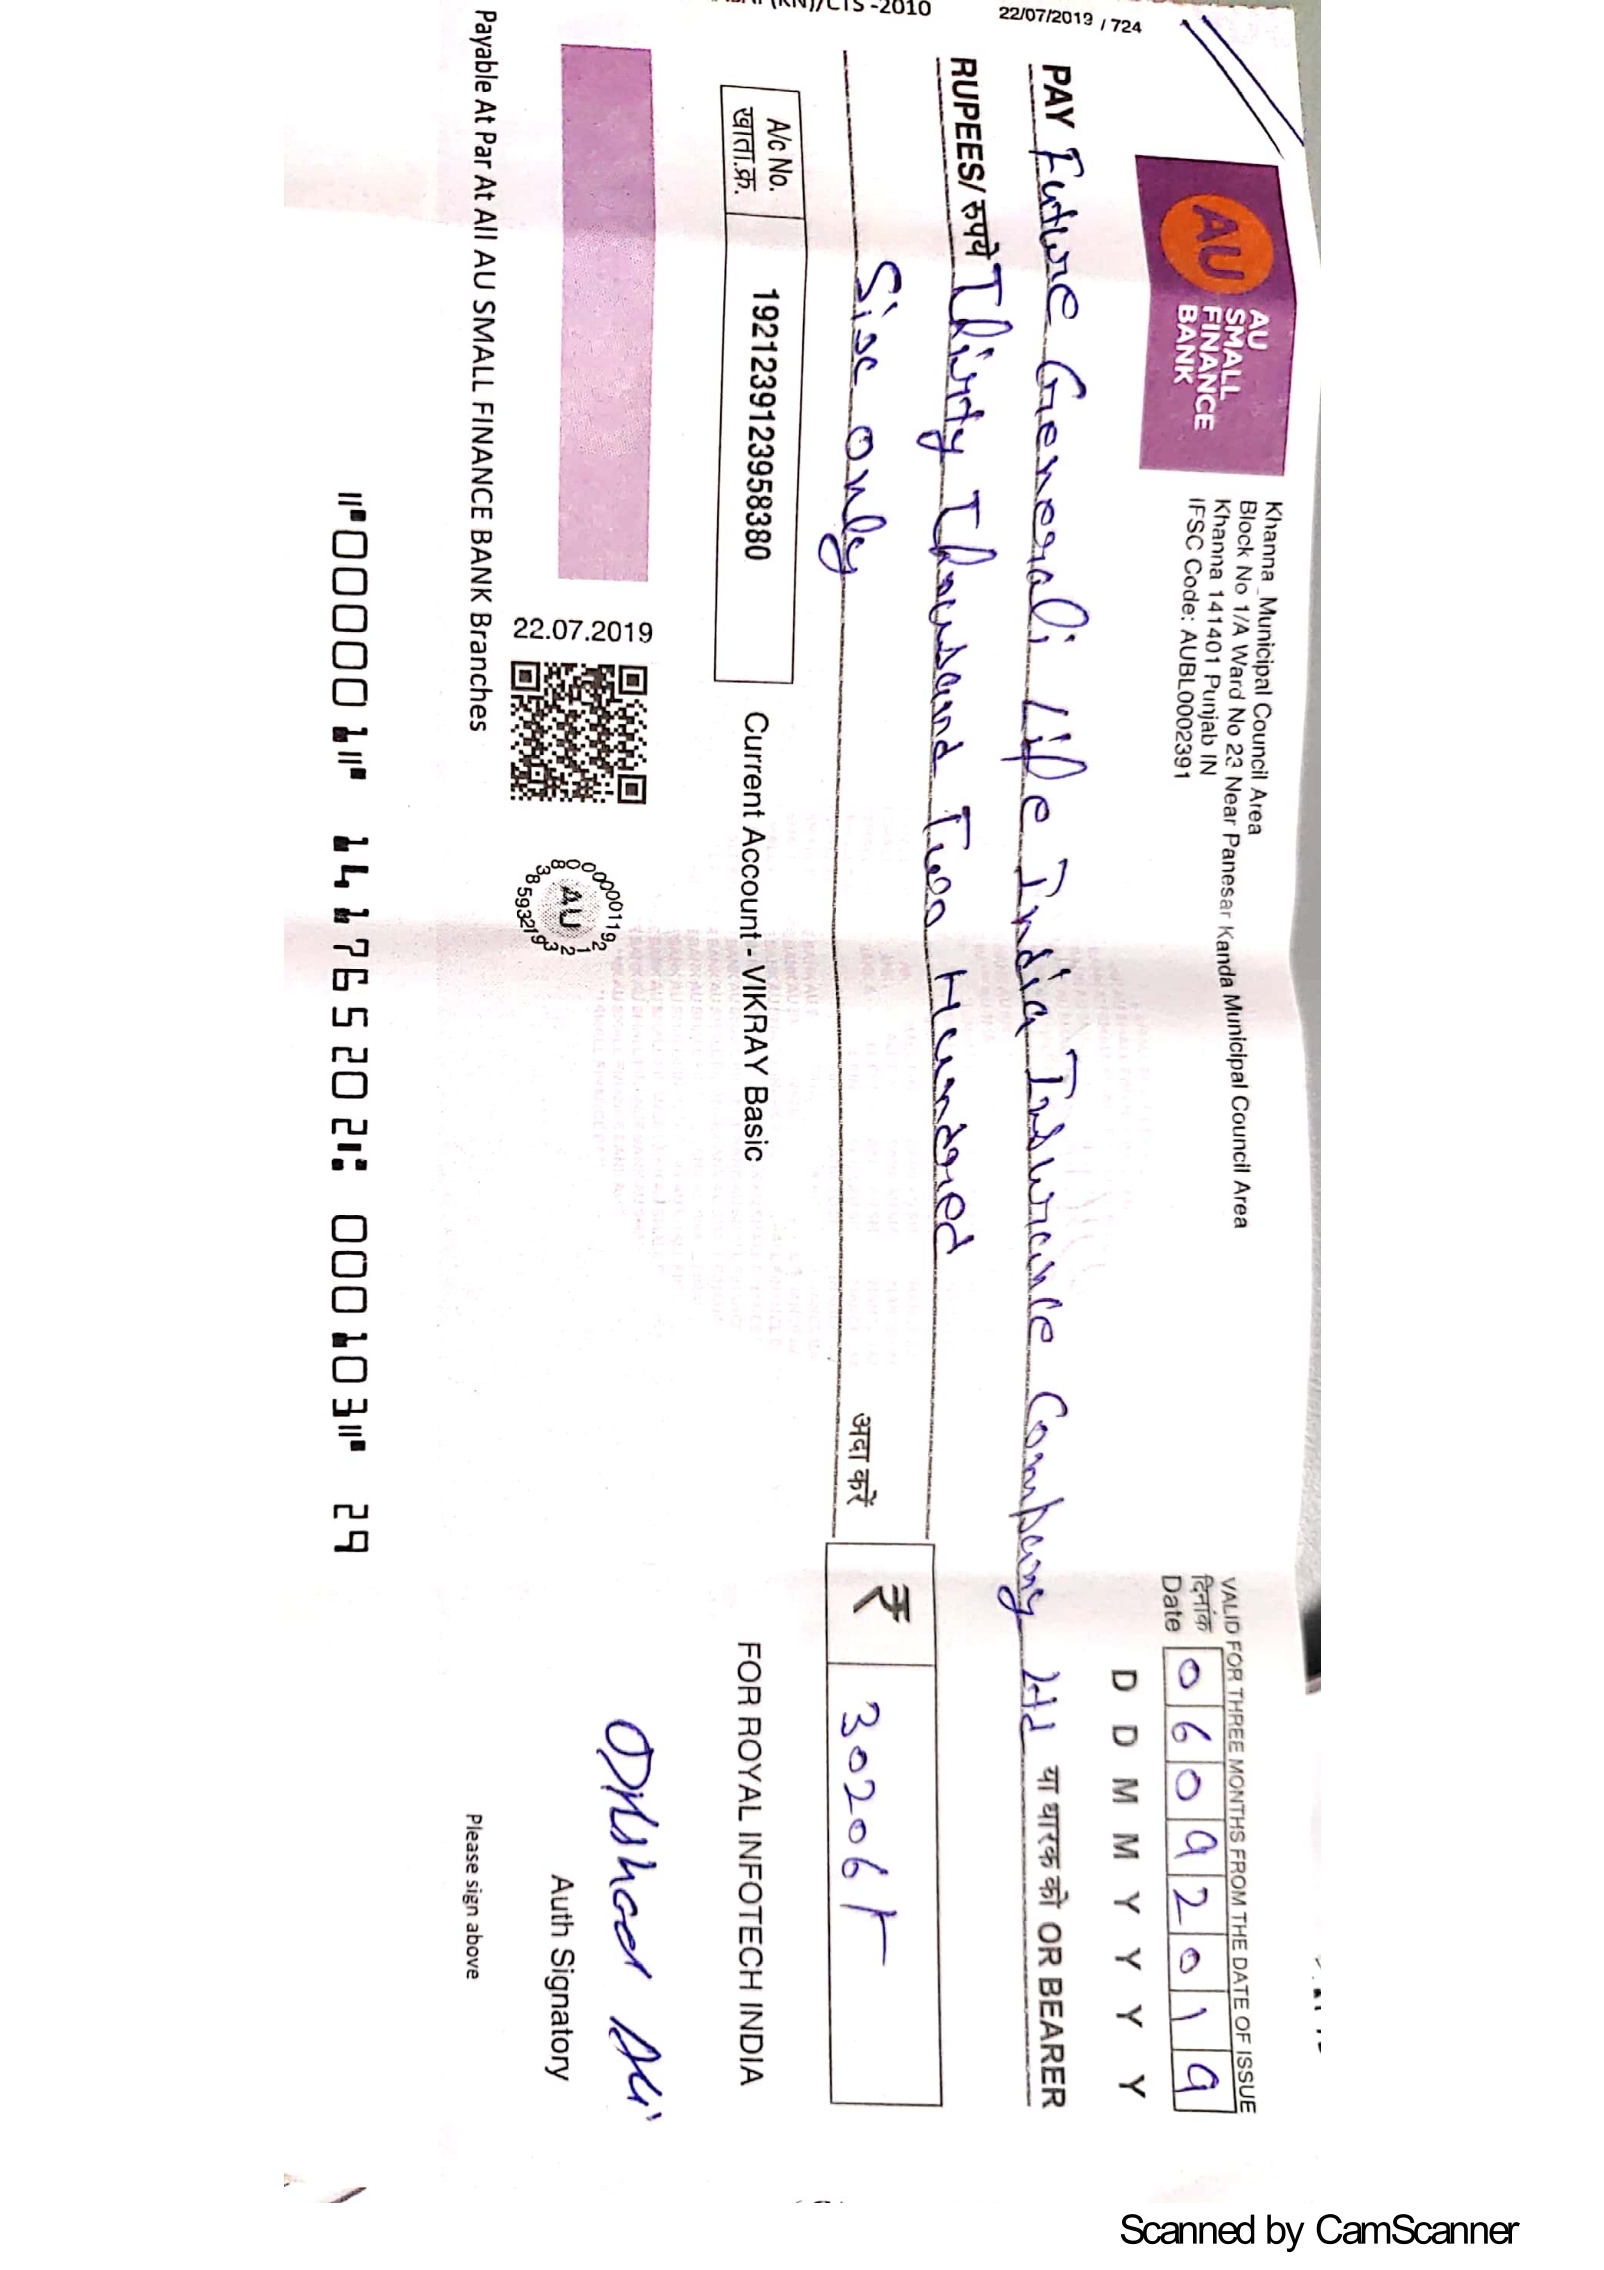 (KN)/CTS -2010 22/07/2019 / 724
AU
AU
SMALL
FINANCE
BANK
Khanna _Municipal Council Area
Block No 1/A Ward No 23 Near Panesar Kanda Municipal Council Area
Khanna 141401 Punjab IN
IFSC Code: AUBL0002391
VALID FOR THREE MONTHS FROM THE DATE OF ISSUE
दिनांक
Date 0 6 0 9 2 0 1 9
D D M M Y Y Y Y
PAY Future Generali Life India Insurance Company Ltd या धारक को OR BEARER
RUPEES/ रुपये Thirty Thousand Two Hundred
Six only अदा करें ₹ 30206/-
A/c No.
खाता.क्र. 1921239123958380 Current Account - VIKRAY Basic
FOR ROYAL INFOTECH INDIA
22.07.2019
AU
Dilshad Ali
Auth Signatory
Payable At Par At All AU SMALL FINANCE BANK Branches
Please sign above
⑈000001⑈ 141765202⑆ 000103⑈ 29
Scanned by CamScanner